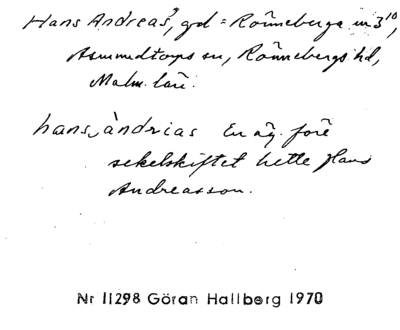 Hans Andreas', gd = Rönneberga nr 3¹⁰,
Asmundtorps sn, Rönnebergs hd,
Malm. län.
hans, àndrias En äg. före
sekelskiftet hette Hans
Andreasson.
Nr 11298 Göran Hallberg 1970